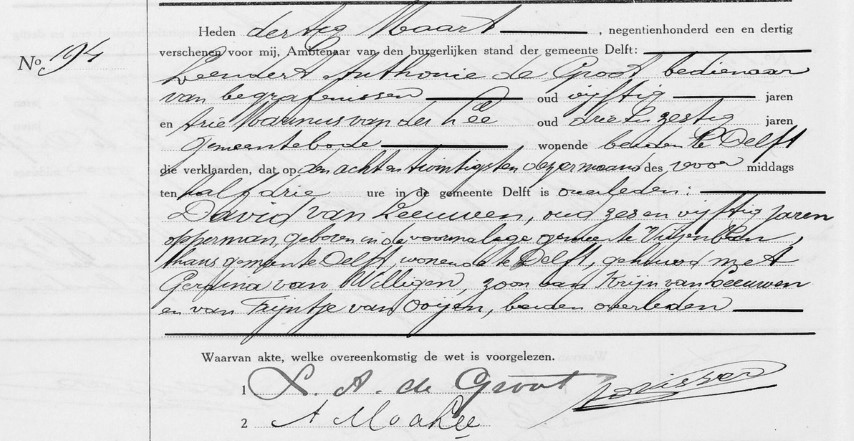 No. 194
Heden dertig Maart, negentienhonderd een en dertig
verschenen voor mij, Ambtenaar van den burgerlijken stand der gemeente Delft:
Leendert Anthonie de Groot, bedienaar
van begrafenissen oud vijftig jaren
en Arie Marinus van der Lee oud drie en zestig jaren
gemeentebode wonende beiden te Delft
die verklaarden, dat op den achtentwintigsten dezer maand des voor middags
ten half drie ure in de gemeente Delft is overleden:
David van Leeuwen, oud zes en vijftig jaren
opperman, geboren in de voormalige gemeente Vrijenban,
thans gemeente Delft, wonende te Delft, gehuwd met
Gerarda van Willigen, zoon van Krijn van Leeuwen
en van Fijntje van Ooijen, beiden overleden
Waarvan akte, welke overeenkomstig de wet is voorgelezen.
1 L. A. de Groot
2 A M v d Lee